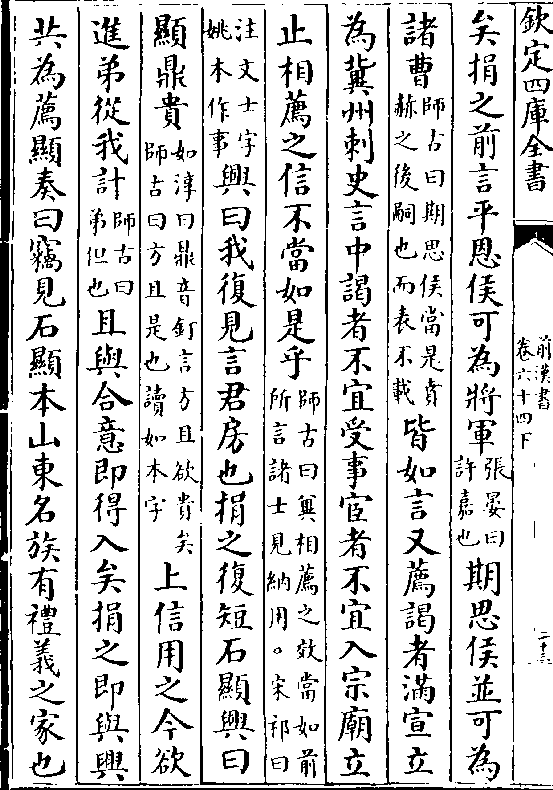 欽定四庫全書
前漢書
卷六十四下
二十三
矣捐之前言平恩侯可為將軍張晏曰許嘉也期思侯並可為
諸曹師古曰期思侯當是賁赫之後嗣也而表不載皆如言又薦謁者滿宣立
為冀州刺史言中謁者不宜受事宦者不宜入宗廟立
止相薦之信不當如是乎師古曰兾相薦之效當如前所言諸士見納用。宋祁曰
注文士字姚本作事興曰我復見言君房也捐之復短石顯興曰
顯鼎貴如淳曰鼎音釘言方且欲貴矣師古曰方且是也讀如本字上信用之今欲
進弟從我計師古曰弟但也且與合意即得入矣捐之即與興
共為薦顯奏曰竊見石顯本山東名族有禮義之家也